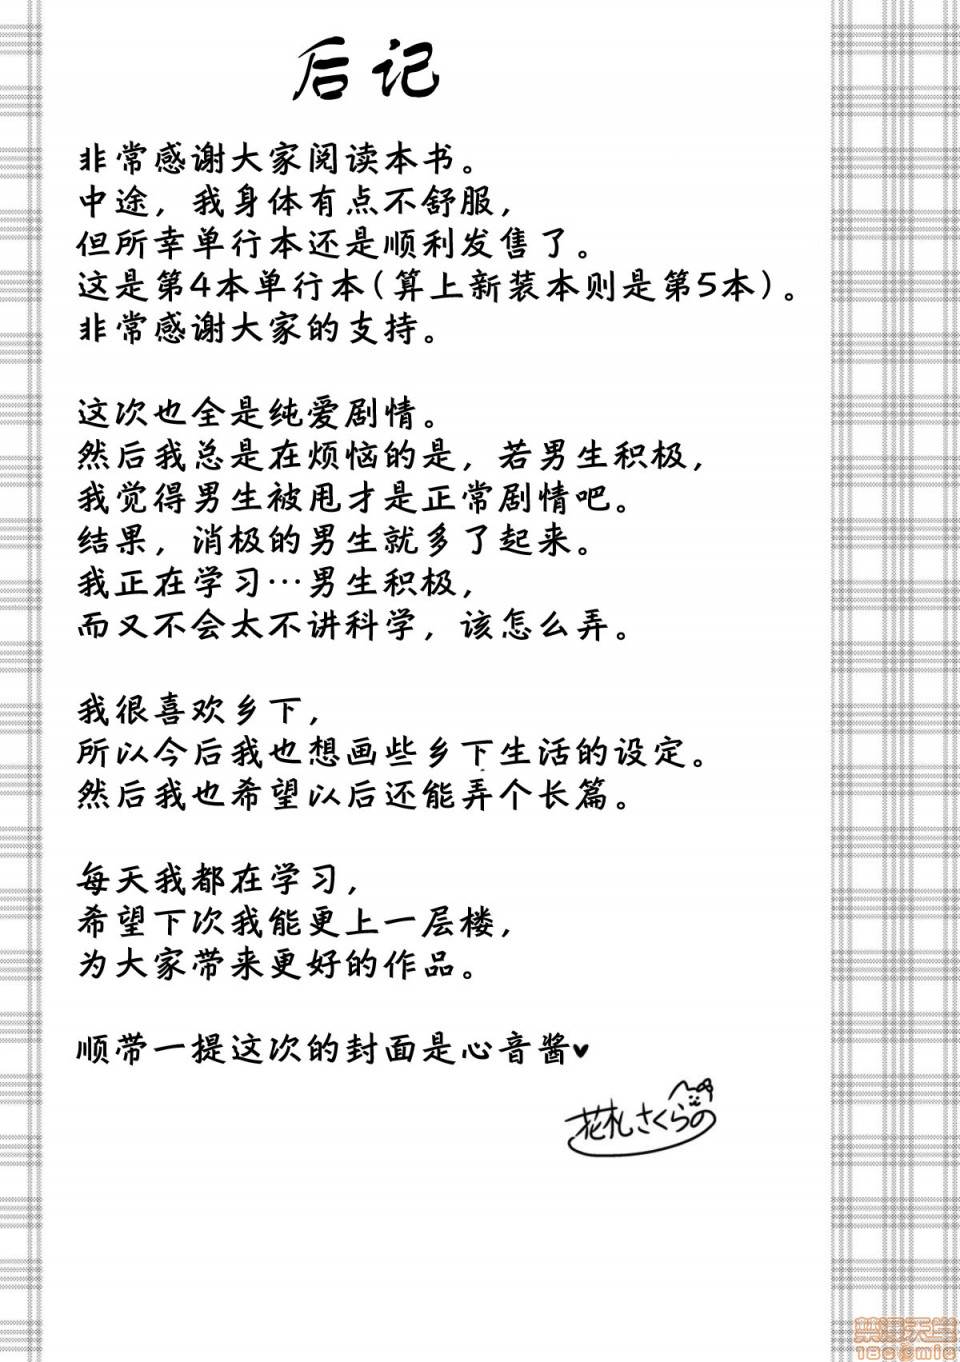 后记
非常感谢大家阅读本书。
中途，我身体有点不舒服，
但所幸单行本还是顺利发售了。
这是第4本单行本(算上新装本则是第5本)。
非常感谢大家的支持。
这次也全是纯爱剧情。
然后我总是在烦恼的是，若男生积极，
我觉得男生被甩才是正常剧情吧。
结果，消极的男生就多了起来。
我正在学习…男生积极，
而又不会太不讲科学，该怎么弄。
我很喜欢乡下，
所以今后我也想画些乡下生活的设定。
然后我也希望以后还能弄个长篇。
每天我都在学习，
希望下次我能更上一层楼，
为大家带来更好的作品。
顺带一提这次的封面是心音酱♥
花札さくらの
禁漫天堂